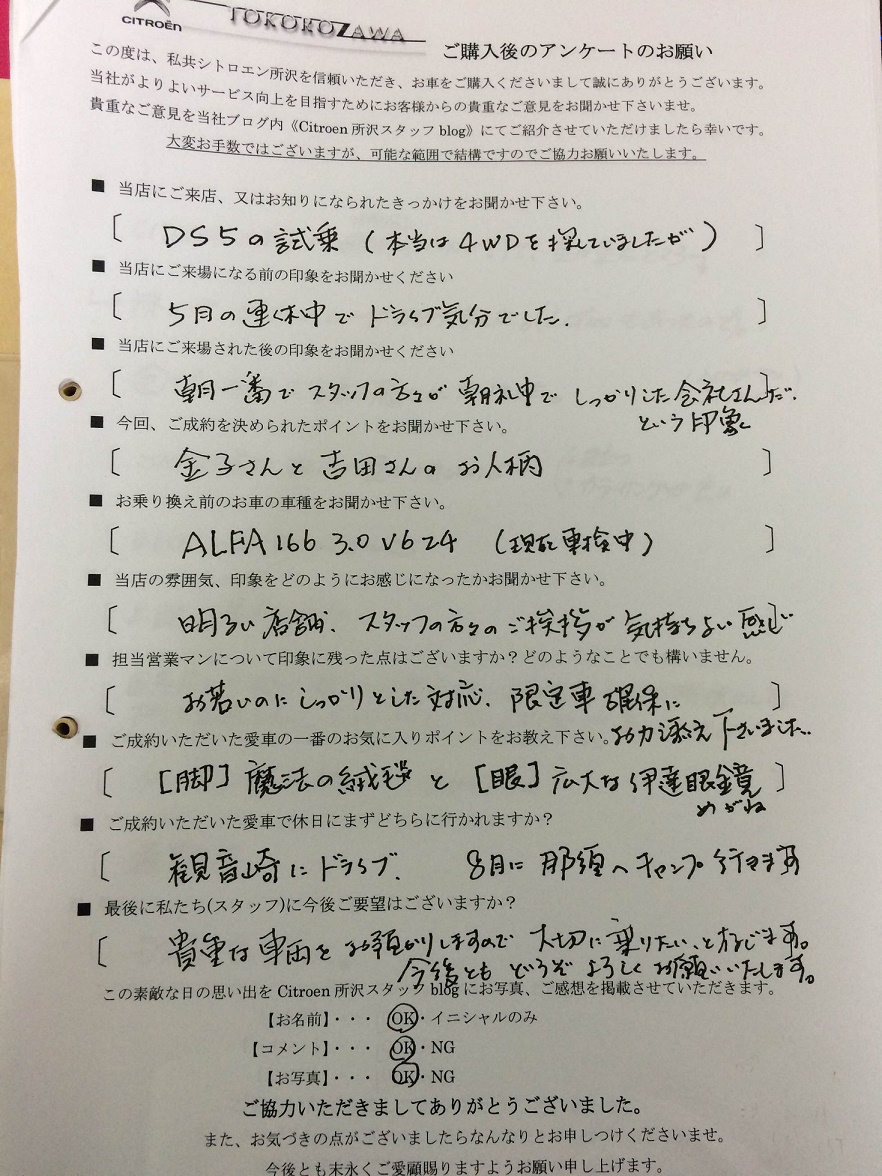 CITROËN TOKOROZAWA
ご購入後のアンケートのお願い
この度は、私共シトロエン所沢を信頼いただき、お車をご購入くださいまして誠にありがとうございます。
当社がよりよいサービス向上を目指すためにお客様からの貴重なご意見をお聞かせ下さいませ。
貴重なご意見を当社ブログ内《Citroen 所沢スタッフ blog》にてご紹介させていただけましたら幸いです。
大変お手数ではございますが、可能な範囲で結構ですのでご協力お願いいたします。
■ 当店にご来店、又はお知りになられたきっかけをお聞かせ下さい。
[ DS5の試乗 (本当は4WDを探していましたが) ]
■ 当店にご来場になる前の印象をお聞かせください
[ 5月の連休中でドライブ気分でした. ]
■ 当店にご来場された後の印象をお聞かせください
[ 朝一番でスタッフの方々が朝礼中でしっかりした会社さん]だ.
という印象
■ 今回、ご成約を決められたポイントをお聞かせ下さい。
[ 金子さんと吉田さんのお人柄 ]
■ お乗り換え前のお車の車種をお聞かせ下さい。
[ ALFA166 3.0 V6 24 (現在車検中) ]
■ 当店の雰囲気、印象をどのようにお感じになったかお聞かせ下さい。
[ 明るい店舗、スタッフの方々のご挨拶が気持ちよい感]じ
■ 担当営業マンについて印象に残った点はございますか？どのようなことでも構いません。
[ お若いのにしっかりとした対応. 限定車確保に ]
お力添え下さいました.
■ ご成約いただいた愛車の一番のお気に入りポイントをお教え下さい。
[ [脚] 魔法の絨毯と [眼] 広大な伊達眼鏡 ]
めがね
■ ご成約いただいた愛車で休日にまずどちらに行かれますか？
[ 観音崎にドライブ. 8月に那須へキャンプ行きます
■ 最後に私たち(スタッフ)に今後ご要望はございますか？
[ 貴重な車両をお預かりしますので大切に乗りたい、と存じます。
今後ともどうぞよろしくお願いいたします。
この素敵な日の思い出を Citroen 所沢スタッフ blog にお写真、ご感想を掲載させていただきます。
【お名前】・・・ OK・イニシャルのみ
【コメント】・・・ OK・NG
【お写真】・・・ OK・NG
ご協力いただきましてありがとうございました。
また、お気づきの点がございましたらなんなりとお申しつけくださいませ。
今後とも末永くご愛顧賜りますようお願い申し上げます。